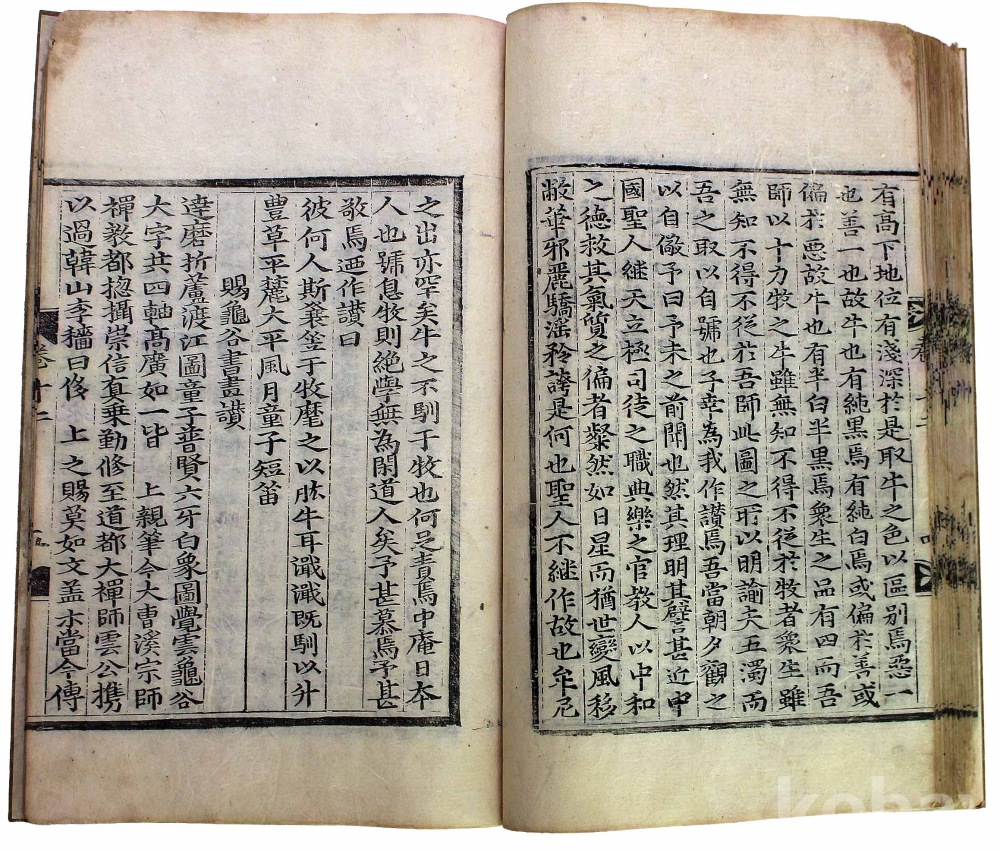 有高下地位有淺深於是取牛之色以區別焉惡一
也善一也故牛也有純黑焉有純白焉或偏於善或
偏於惡故牛也有半白半黑焉衆生之品有四而吾
師以十力牧之牛雖無知不得不從於牧者衆生雖
無知不得不從於吾師此圖之所以明諭夫五濁而
吾之取以自號也子幸為我作讃焉吾當朝夕觀之
以自儆予曰予未之前聞也然其理明其譬甚近中
國聖人継天立極司徒之職典樂之官教人以中和
之德救其氣質之偏者粲然如日星而猶世變風移
敝華邪麗驕滛矜誇是何也聖人不継作故也牟尼
卷十二
四
之出亦罕矣牛之不馴于牧也何足責焉中庵日本
人也號息牧則絶學無為閑道人矣予甚慕焉予甚
敬焉迺作讃曰
彼何人斯蓑笠于牧麾之以肱牛耳濈濈既馴以升
豊草平麓大平風月童子短笛
賜龜谷書畫讃
達磨折蘆渡江圖童子普賢六牙白象圖覺雲龜谷
大字共四軸高廣如一皆 上親筆今大曹溪宗師
禪教都揔攝崇信真乗勤修至道都大禪師雲公携
以過韓山李穡曰侈 上之賜莫如文盖示當今傳
卷十二
五
koba